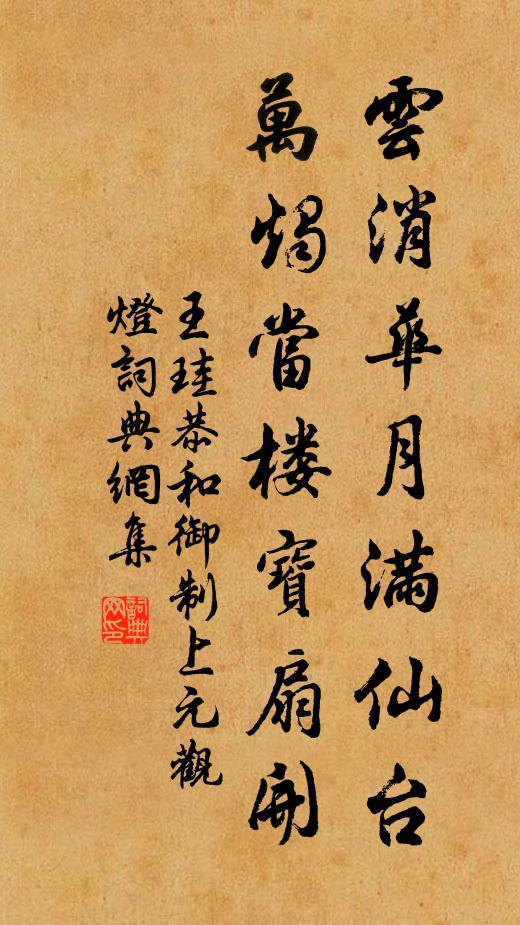 雲消華月满仙台
萬燭當楼寶扇開
王珪恭和御制上元觀
燈詞典網集
詞典网印